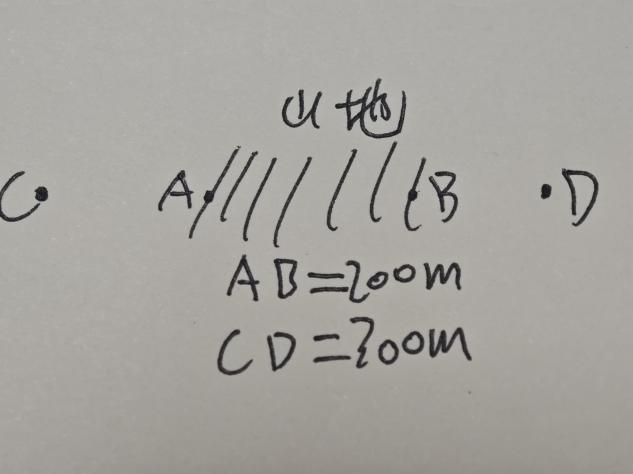 山地
C A B D
AB=200m
CD=300m